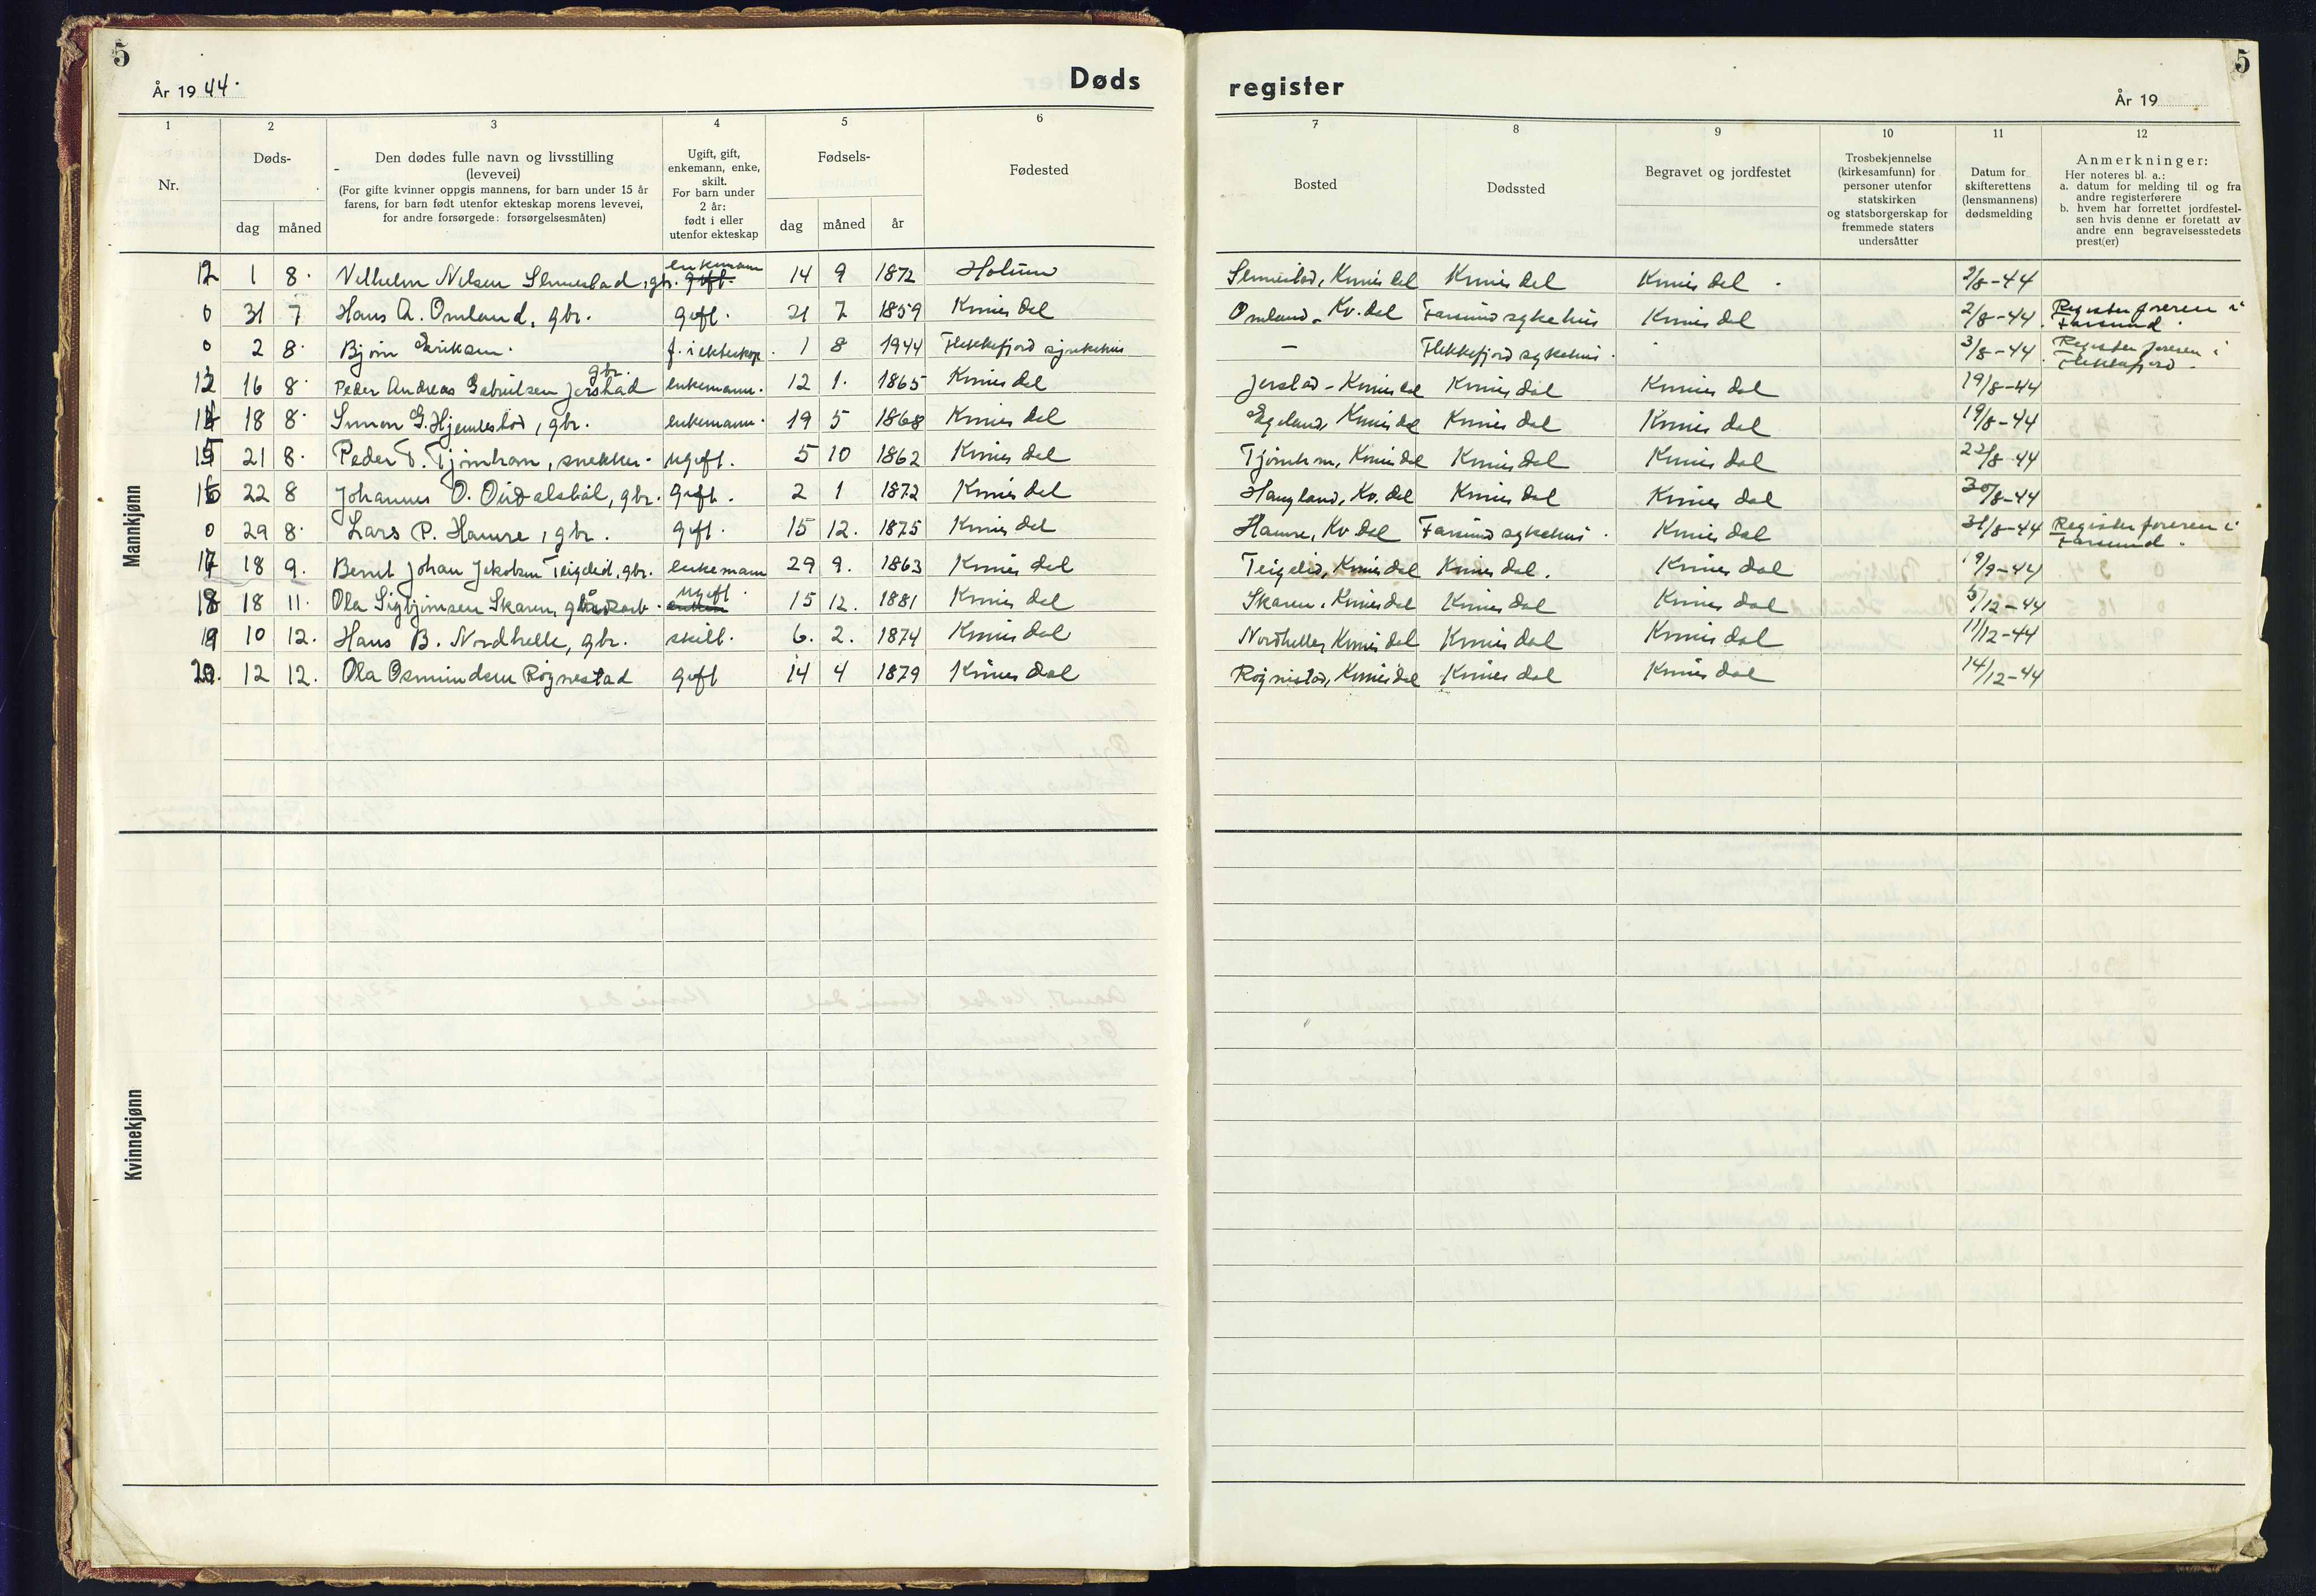 5
År 1944.
Døds
register
5
År 19
1 2 3 4 5 6
7 8 9 10 11 12
Nr.
Døds-
dag måned
Den dødes fulle navn og livsstilling
(levevei)
(For gifte kvinner oppgis mannens, for barn under 15 år
farens, for barn født utenfor ekteskap morens levevei,
for andre forsørgede: forsørgelsesmåten)
Ugift, gift,
enkemann, enke,
skilt.
For barn under
2 år:
født i eller
utenfor ekteskap
Fødsels-
dag måned år
Fødested
Bosted
Dødssted
Begravet og jordfestet
Trosbekjennelse
(kirkesamfunn) for
personer utenfor
statskirken
og statsborgerskap for
fremmede staters
undersåtter
Datum for
skifterettens
(lensmannens)
dødsmelding
Anmerkninger:
Her noteres bl. a.:
a. datum for melding til og fra
andre registerførere
b. hvem har forrettet jordfestel-
sen hvis denne er foretatt av
andre enn begravelsesstedets
prest(er)
Mannkjønn
12 1 8. Vilhelm Nilsen gbr. enkemann gift. 14 9 1872 Holum Kvinesdal Kvinesdal Kvinesdal 2/8-44
0 31 7 Hans A. Omland, gbr. gift. 21 7 1859 Kvinesdal Omland, Kv.dal Farsund sykehus Kvinesdal 2/8-44 Registerføreren i
Farsund.
0 2 8. Bjørn Eriksen. f. i ekteskap. 1 8 1944 Flekkefjord sjukehus — Flekkefjord sykehus. 3/8-44 Registerføreren i
Flekkefjord.
13 16 8. Peder Andreas Gabrielsen Jerstad gbr. enkemann. 12 1. 1865 Kvinesdal Jerstad - Kvinesdal Kvinesdal Kvinesdal 19/8-44
14 18 8. Simon G. gbr. enkemann. 19 5 1868 Kvinesdal Egeland, Kvinesdal Kvinesdal Kvinesdal 19/8-44
15 21 8. Peder T. Tjørnhom, snekker. ugift. 5 10 1862 Kvinesdal Tjørnhom, Kvinesdal Kvinesdal Kvinesdal 22/8-44
16 22 8 Johannes O. gbr. gift. 2 1 1872 Kvinesdal Haugland, Kv.dal Kvinesdal Kvinesdal 30/8-44
0 29 8. Lars P. Hamre, gbr. gift. 15 12. 1875 Kvinesdal Hamre, Kv.dal Farsund sykehus. Kvinesdal 31/8-44 Registerføreren i
Farsund.
17 18 9. Bernt Johan Jakobsen Teigelid, gbr. enkemann 29 9. 1863 Kvinesdal Teigelid, Kvinesdal Kvinesdal. Kvinesdal 19/9-44
18 18 11. Ola Sigbjørnsen Skaren, ugift. 15 12. 1881 Kvinesdal Skaren, Kvinesdal Kvinesdal Kvinesdal 5/12-44
19 10 12. Hans B. Nordhelle, gbr. skilt. 6. 2. 1874 Kvinesdal Nordhelle, Kvinesdal Kvinesdal Kvinesdal 11/12-44
20. 12 12. Ola Osmundsen Røynestad gift 14 4 1879 Kvinesdal Røynestad, Kvinesdal Kvinesdal Kvinesdal 14/12-44
Kvinnekjønn